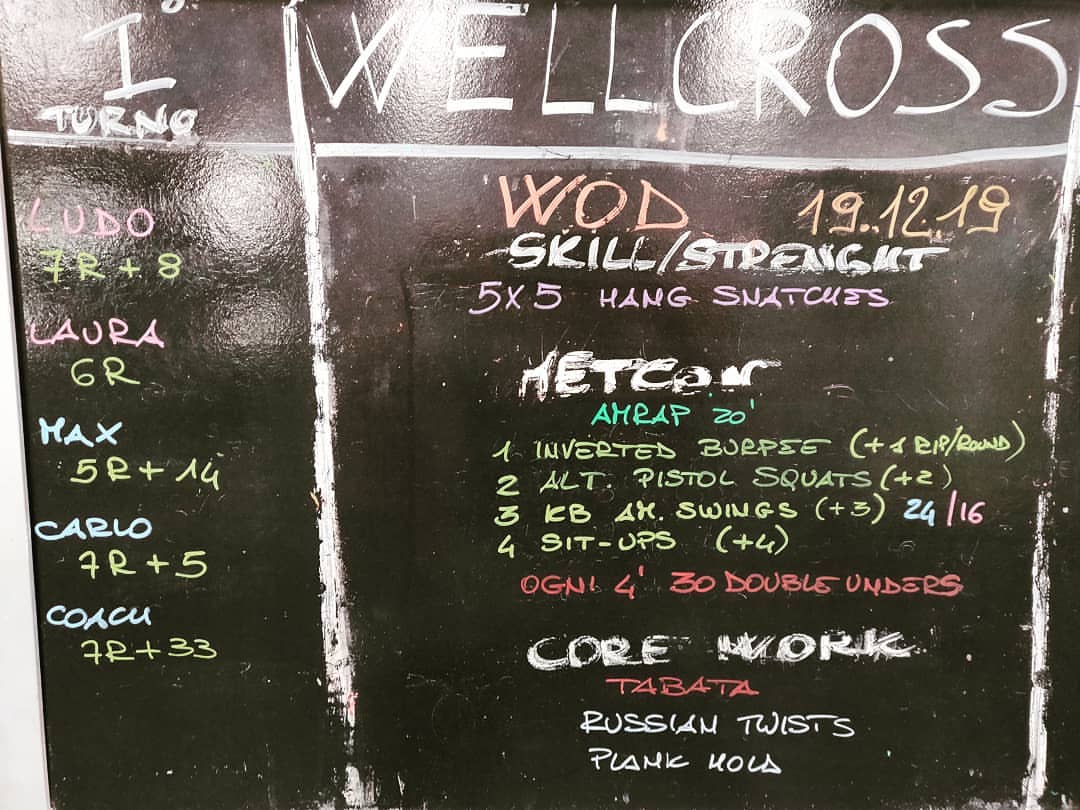 I°
TURNO
LUDO
7R + 8
LAURA
6R
MAX
5R + 14
CARLO
7R + 5
COACH
7R + 33
WELLCROSS
WOD 19.12.19
SKILL/STRENGHT
5X5 HANG SNATCHES
METCON
AMRAP 20'
1 INVERTED BURPEE (+1 RIP/ROUND)
2 ALT. PISTOL SQUATS (+2)
3 KB AM. SWINGS (+3) 24/16
4 SIT-UPS (+4)
OGNI 4' 30 DOUBLE UNDERS
CORE WORK
TABATA
RUSSIAN TWISTS
PLANK HOLD